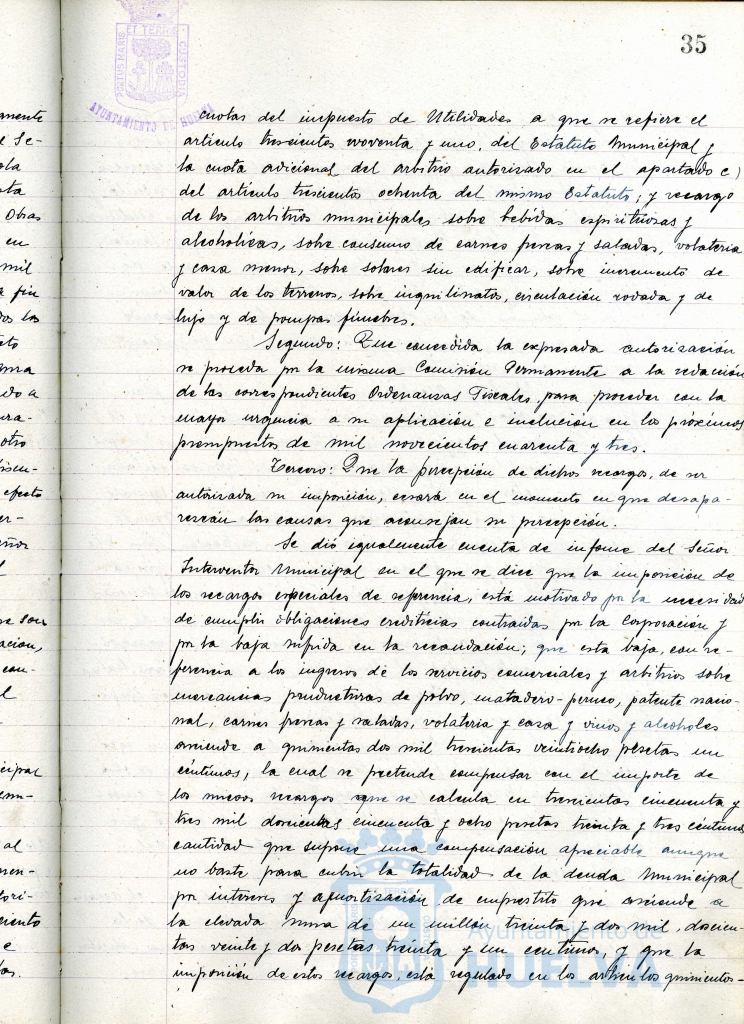 35
PORTUS MARIS ET TERRÆ CUSTODIA
AYUNTAMIENTO DE HUELVA
cuotas del impuesto de Utilidades a que se refiere el
artículo trescientos noventa y uno, del Estatuto Municipal y
la cuota adicional del arbitrio autorizado en el apartado c)
del artículo trescientos ochenta del mismo Estatuto; y recargo
de los arbitrios municipales sobre bebidas espirituosas y
alcoholicas, sobre consumo de carnes frescas y saladas, volateria
y caza menor, sobre solares sin edificar, sobre incremento de
valor de los terrenos, sobre inquilinatos, circulación rodada y de
lujo y de pompas fúnebres.
Segundo: Que concedida la expresada autorización
se proceda por la misma Comisión Permanente a la redacción
de las correspondientes Ordenanzas Fiscales, para proceder con la
mayor urgencia a su aplicación e inclución en los próximos
presupuestos de mil novecientos cuarenta y tres.
Tercero: Que la percepción de dichos recargos, de ser
autorizada su imposición, cesará en el momento en que desapa-
rescan las causas que aconsejan su percepción.
Se dió igualmente cuenta de informe del Señor
Interventor Municipal en el que se dice que la imposición de
los recargos especiales de referencia, está motivado por la necesidad
de cumplir obligaciones crediticias contraidas por la Corporación y
por la baja sufrida en la recaudación; que esta baja, con re-
ferencia a los ingresos de los servicios comerciales y arbitrios sobre
mercancias productoras de polvo, matadero-perneo, patente nacio-
nal, carnes frescas y saladas, volateria y caza y vinos y alcoholes
asciende a quinientas dos mil trescientas veintiocho pesetas un
céntimos, la cual se pretende compensar con el importe de
los nuevos recargos que se calcula en trescientas cincuenta y
tres mil doscientas cincuenta y ocho pesetas treinta y tres céntimos
cantidad que supone una compensación apreciable aunque
no baste para cubrir la totalidad de la deuda Municipal
por intereses y amortización de emprestito que asciende a
la elevada suma de un millón treinta y dos mil, doscien-
tas veinte y dos pesetas treinta y un centimos, y que la
imposición de estos recargos, está regulado en los artículos quinientos-
Ayuntamiento de
HUELVA